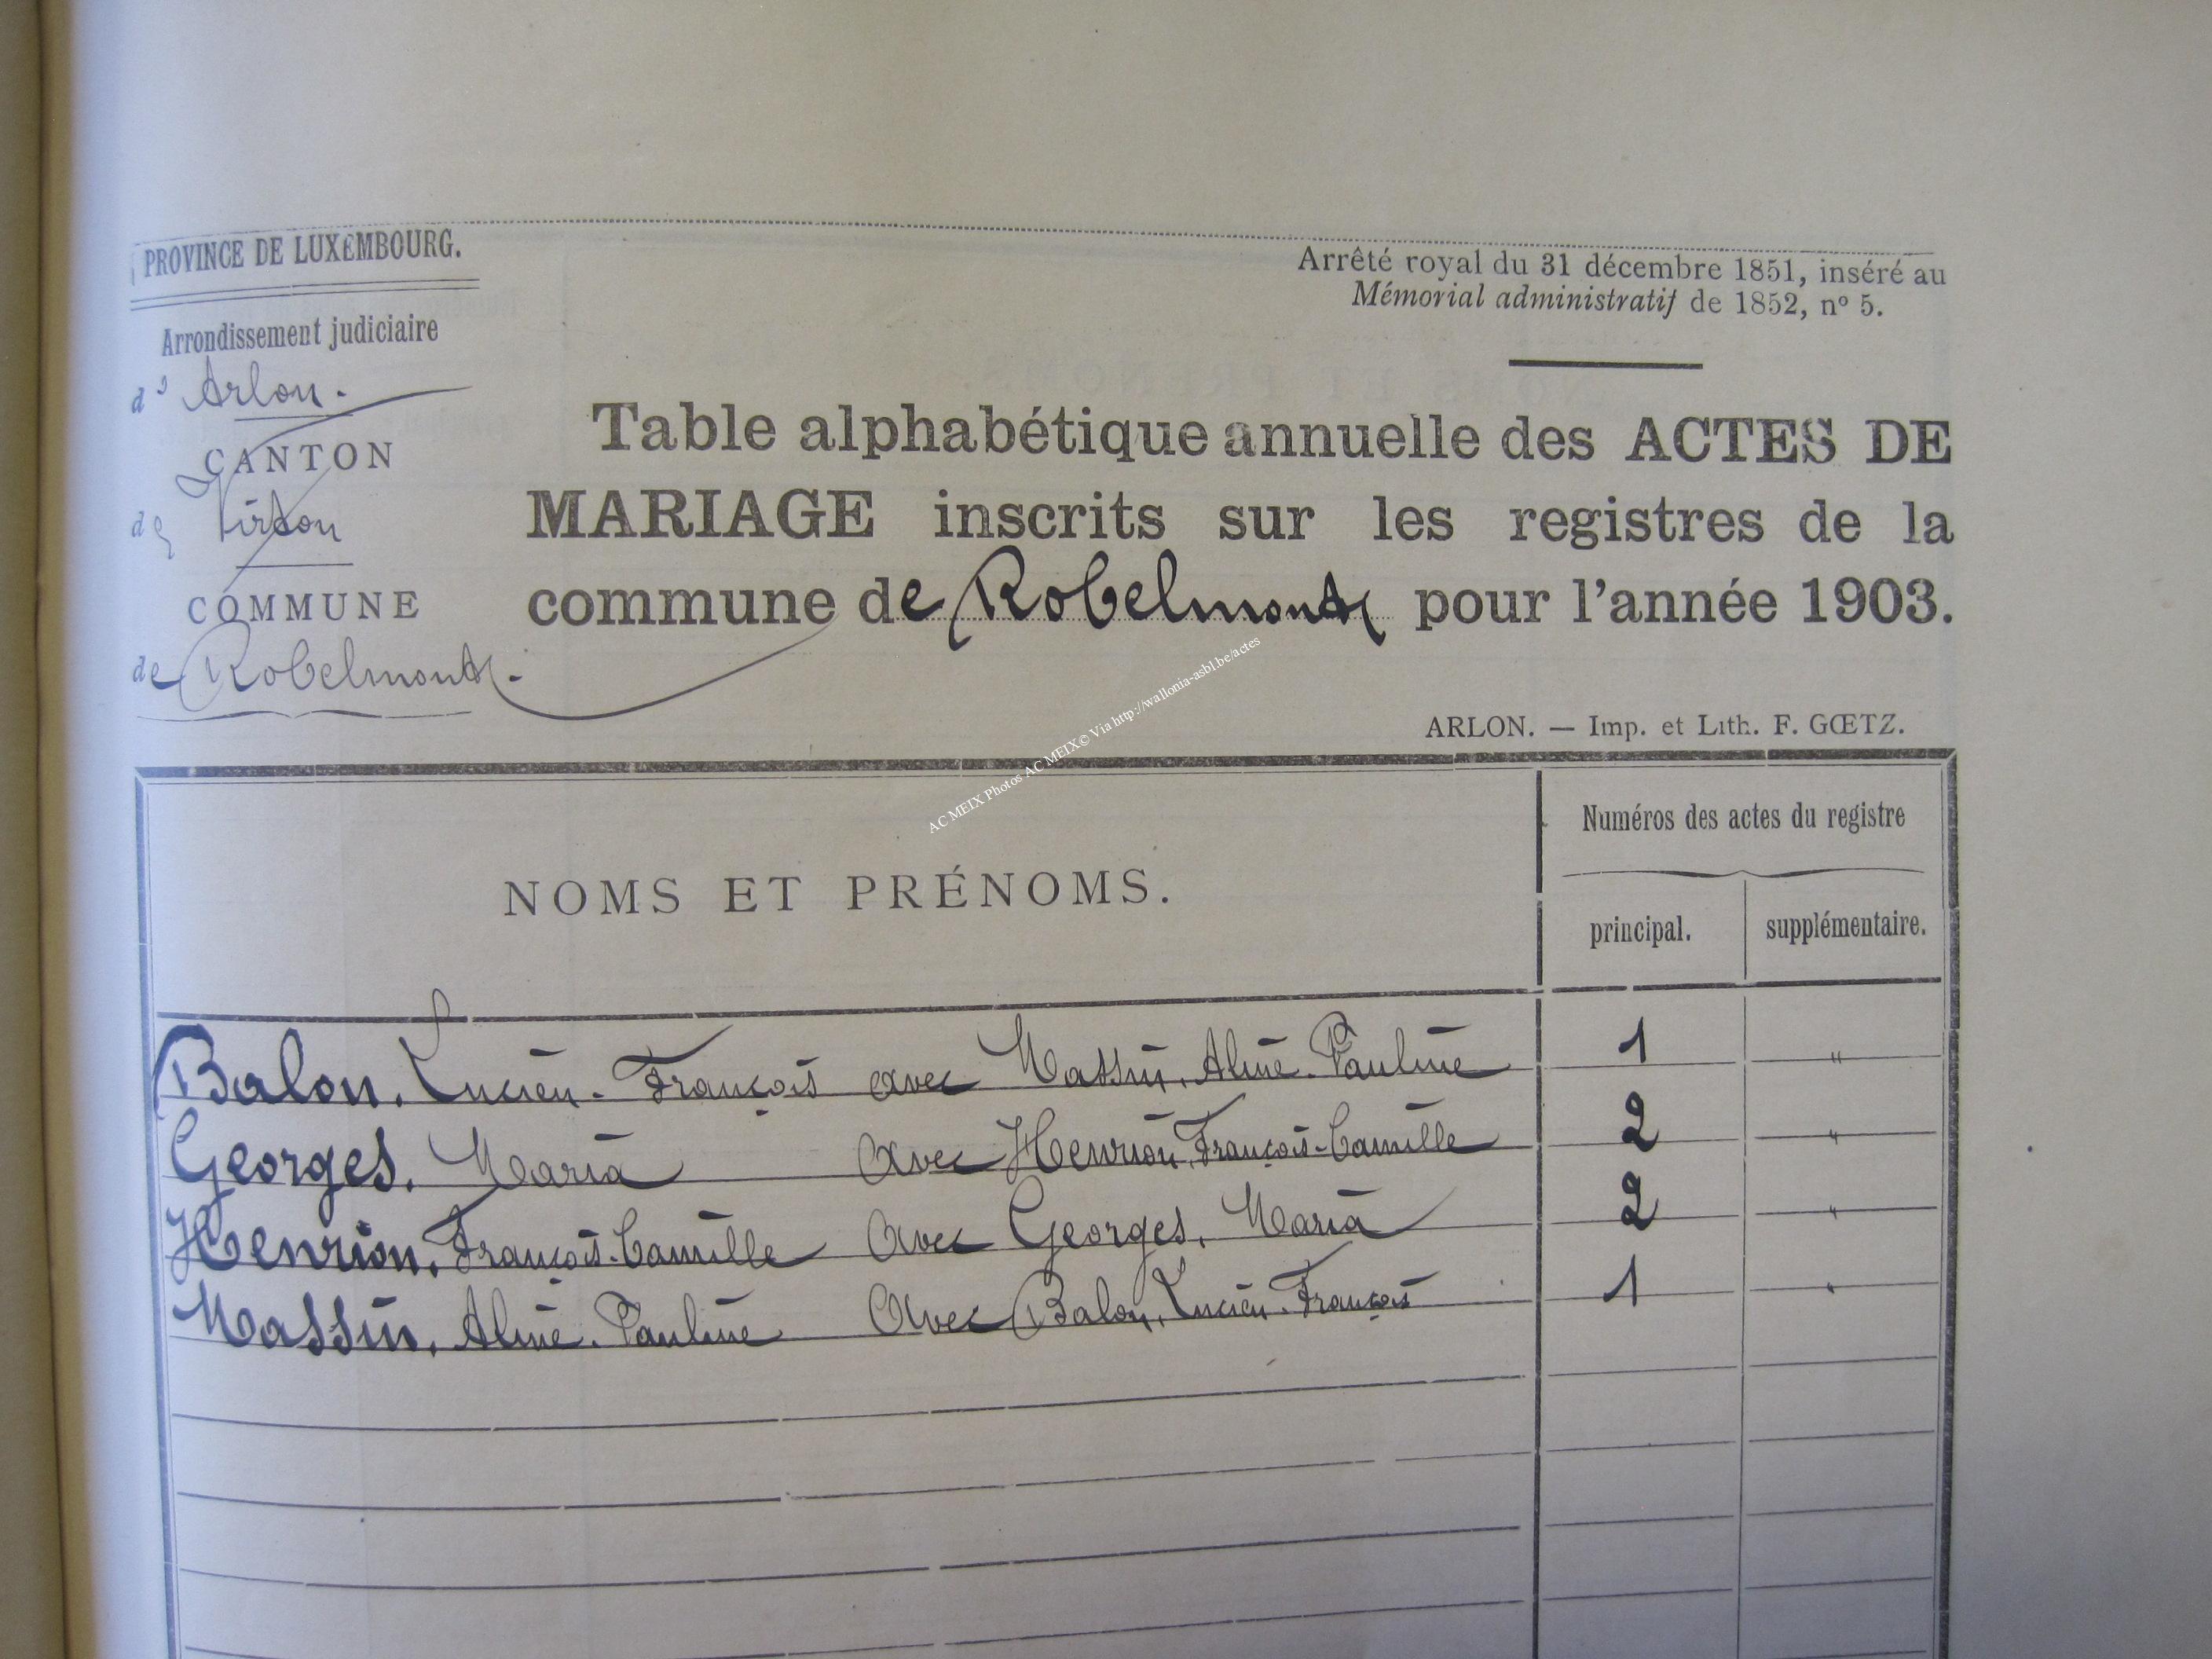 PROVINCE DE LUXEMBOURG.
Arrondissement judiciaire
d' Arlon.
CANTON
de Virton
COMMUNE
de Robelmont.
Arrêté royal du 31 décembre 1851, inséré au
Mémorial administratif de 1852, n° 5.
Table alphabétique annuelle des ACTES DE
MARIAGE inscrits sur les registres de la
commune de Robelmont pour l'année 1903.
ARLON. — Imp. et Lith. F. GŒTZ.
AC MEIX Photos AC MEIX© Via http://wallonia-asbl.be/actes
NOMS ET PRÉNOMS.
Numéros des actes du registre
principal. supplémentaire.
Balon, Lucien-François avec Massin, Aline-Pauline 1 "
Georges, Maria avec Henrion, François-Camille 2 "
Henrion, François-Camille avec Georges, Maria 2 "
Massin, Aline-Pauline avec Balon, Lucien-François 1 "